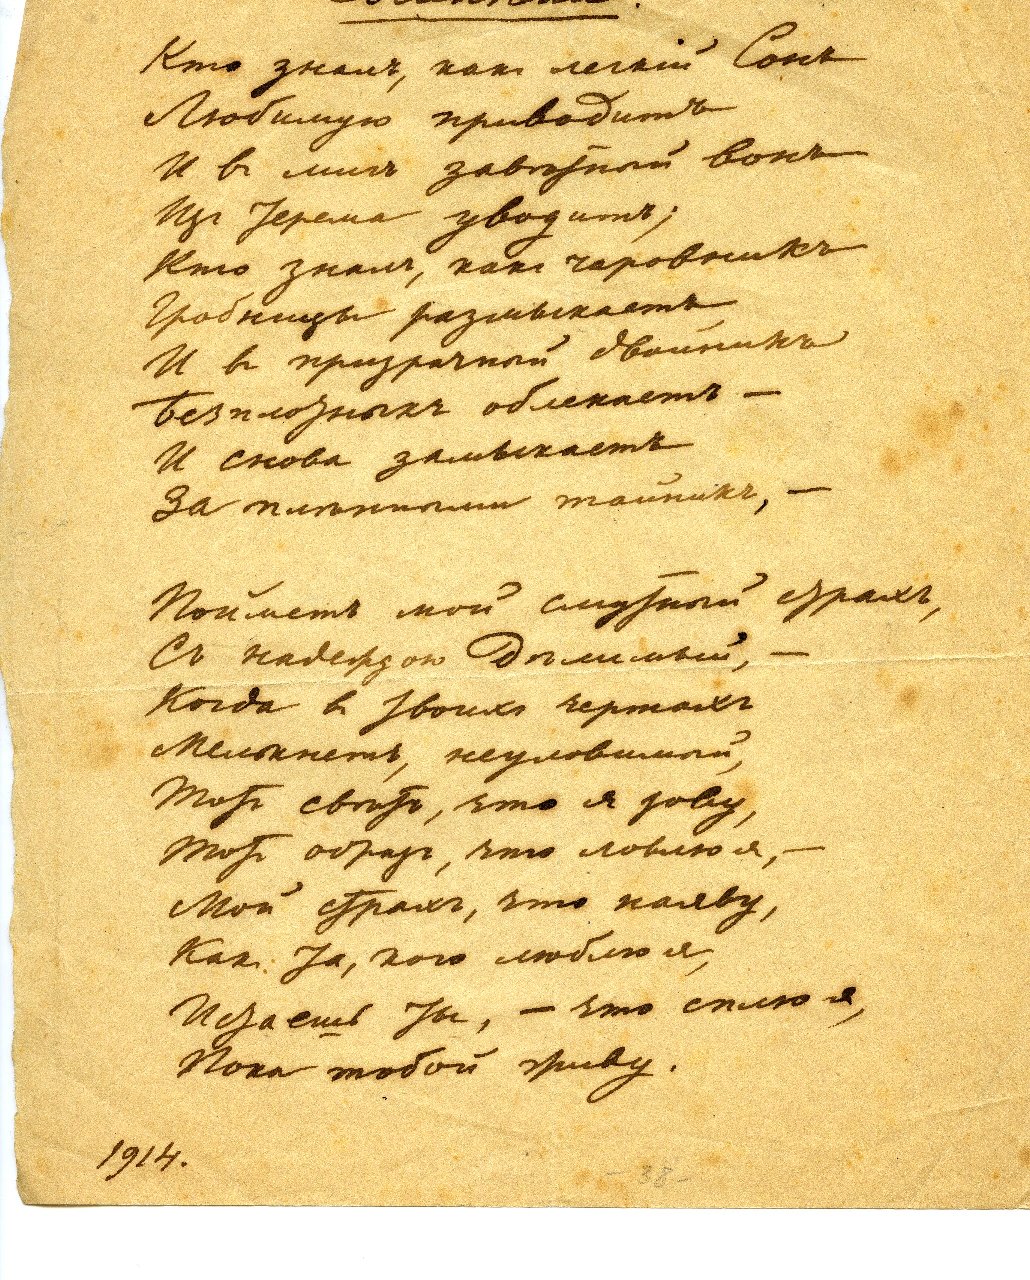 Кто зналъ, какъ легкій Сонъ
Любимую приводитъ
И въ мигъ завѣтный вонъ
Изъ терема уводитъ;
Кто зналъ, какъ чаровникъ
Гробницы размыкаетъ
И въ призрачный двойникъ
Безплотныхъ облекаетъ —
И снова замыкаетъ
За плѣнными тайникъ, —
Пойметъ мой смутный страхъ,
Съ надеждою дѣлимый, —
Когда въ твоихъ чертахъ
Мелькнетъ, неуловимый,
Тотъ свѣтъ, что я зову,
Тотъ образъ, что ловлю я, —
Мой страхъ, что наяву,
Какъ та, кого люблю я,
Истаешь ты, — что сплю я,
Пока тобой живу.
1914.
- 38 -